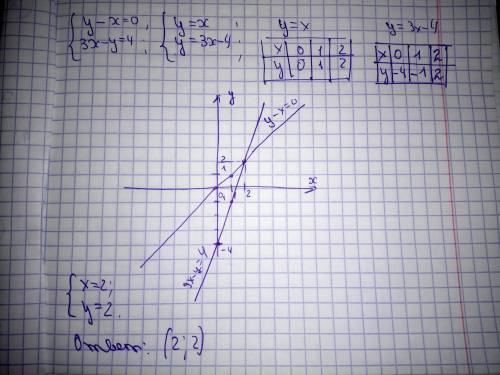 { y-x=0, 3x-y=4, { y=x; y=3x-4; y=x y=3x-4
x 0 1 2
y 0 1 2
x 0 1 2
y -4 -1 2
y
y-x=0
2
1
x
0 1 2
-4
3x-y=4
{ x=2;
y=2.
Ответ: (2;2)